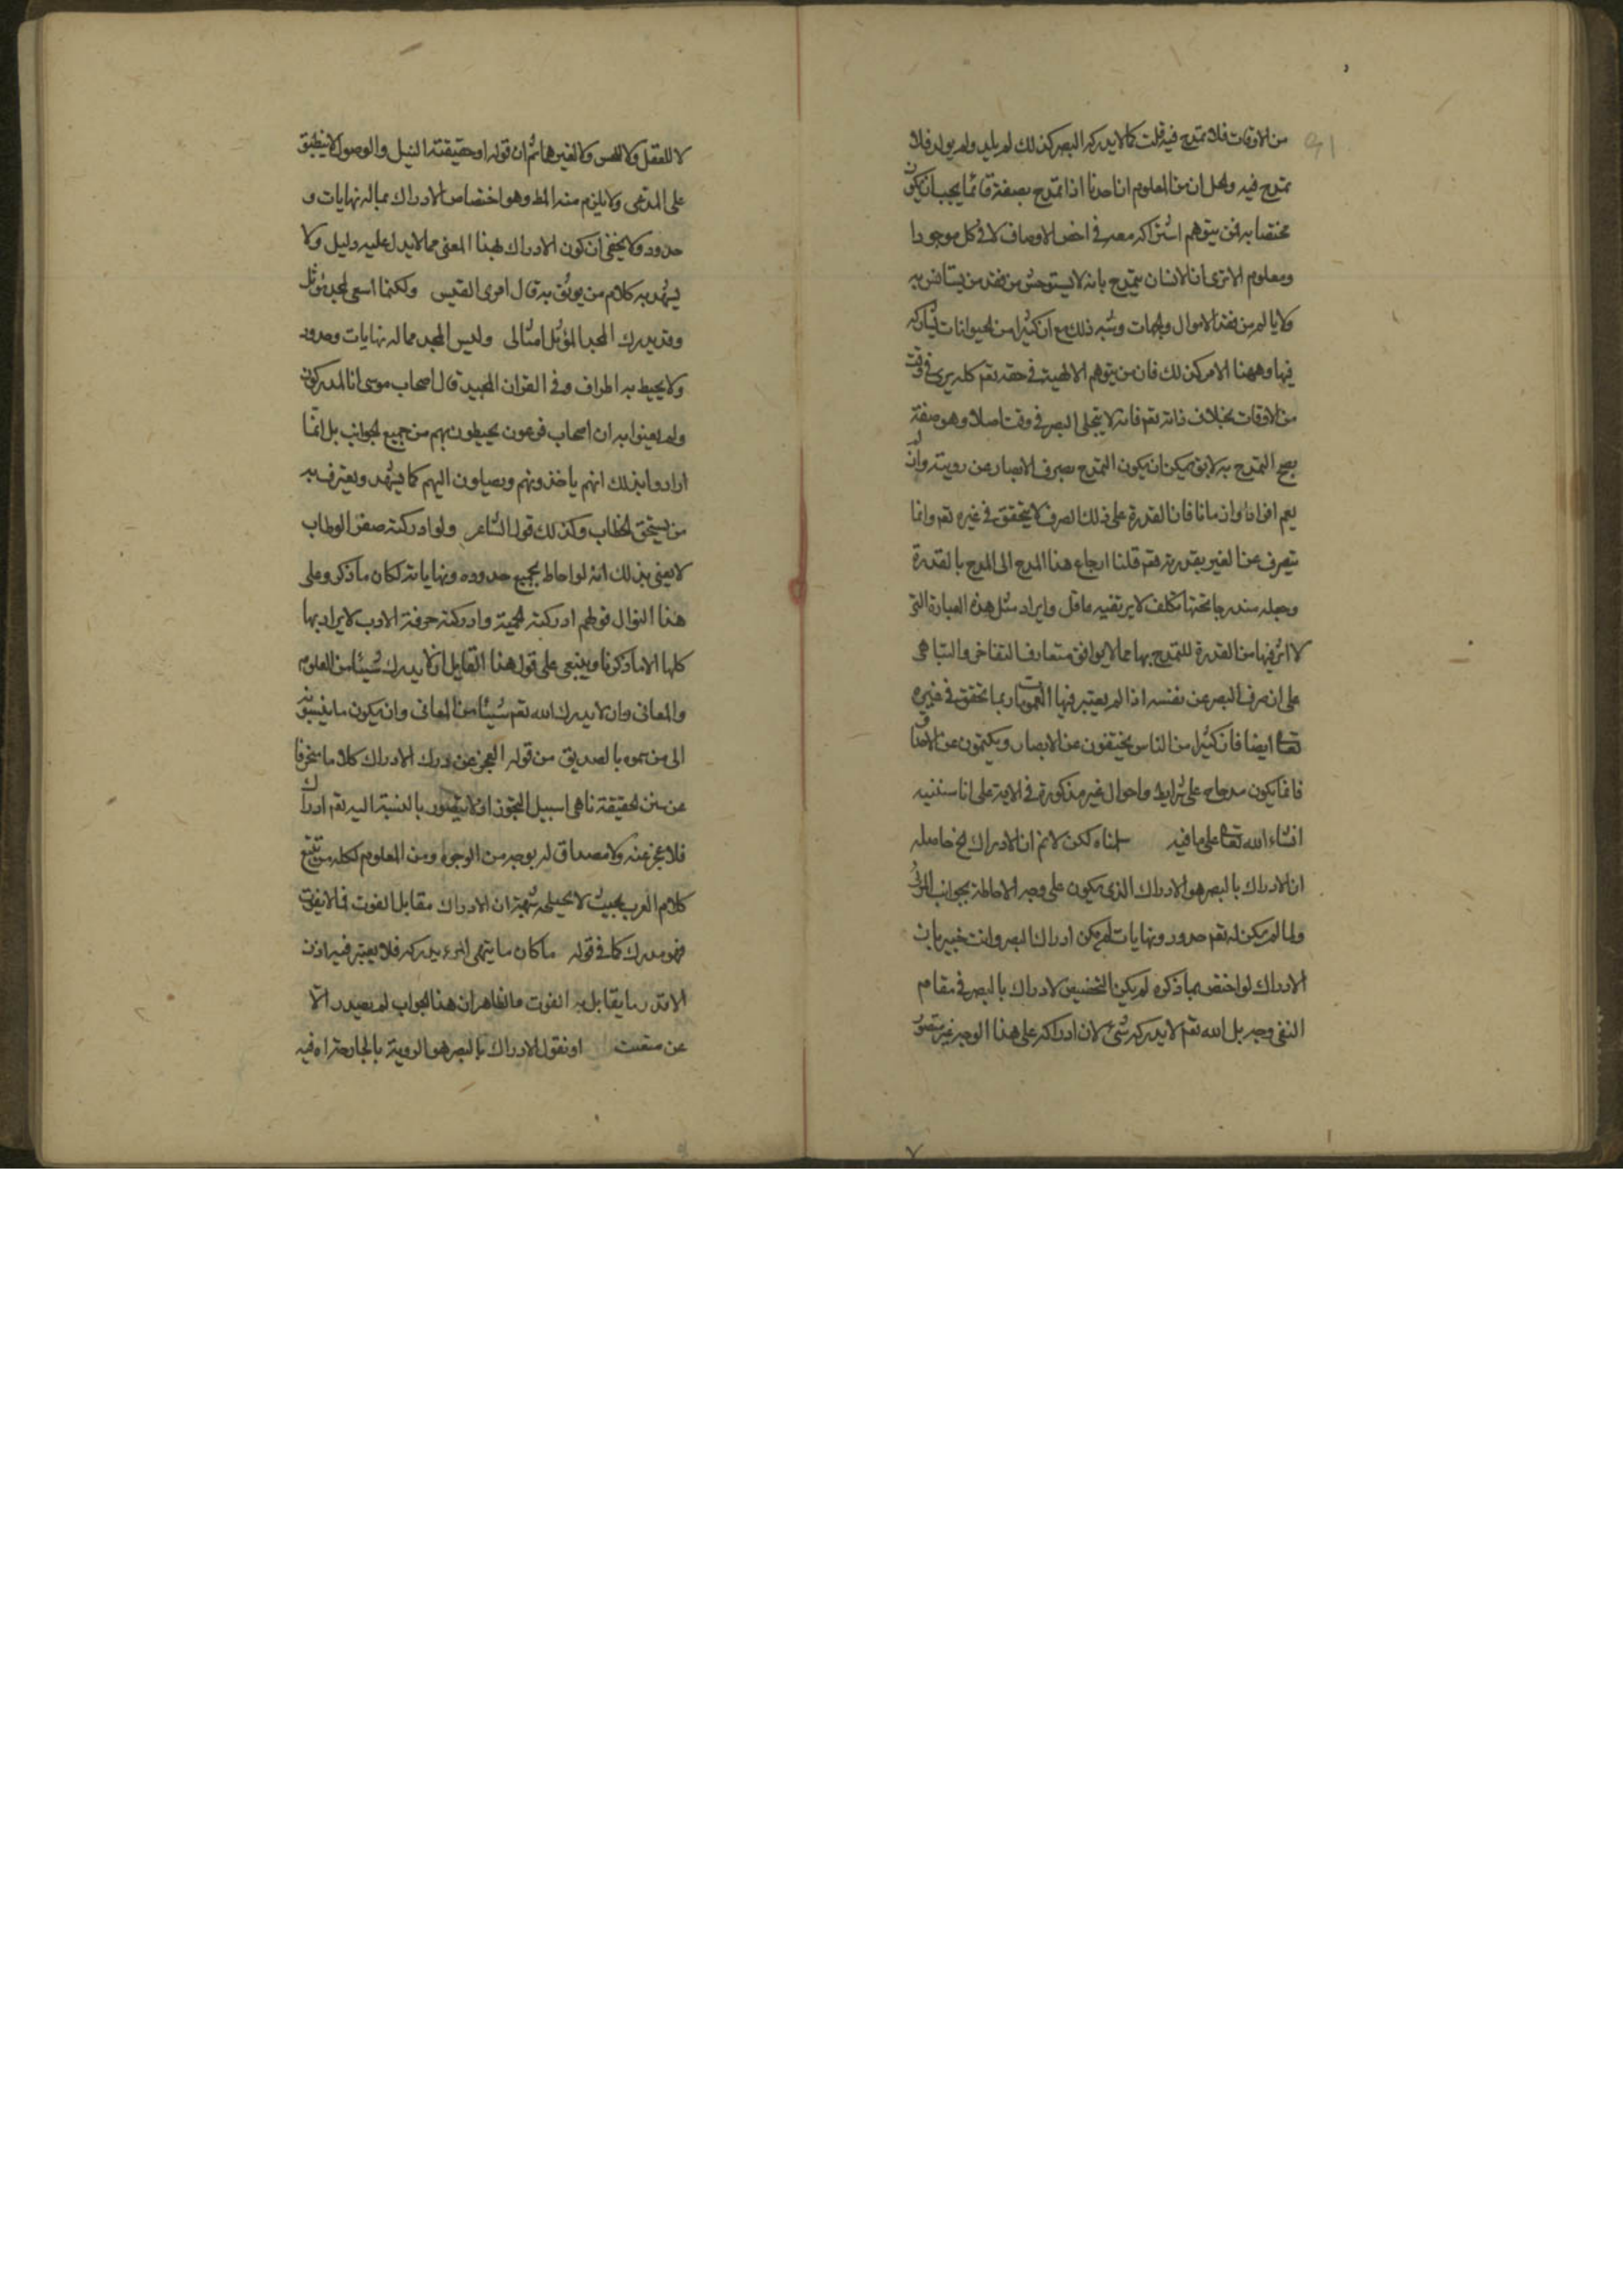 من الاوقات فلا تمدح فيه قلت كما لا يدركه البصر كذلك لم يلد ولم يولد فلا
تمدح فيه ولعل ان من المعلوم ان احدنا اذا تمدح بصفة فانما يجب ان يكون
مختصا به فمن يتوهم اشتراكه معه في اخص الاوصاف لا في كل موجود ا
ومعلوم الا ترى ان الانسان يتمدح بانه لا يستوحش من فقد من يستانس به
ولا يالم من فقد الاموال والجهات وشبه ذلك مع ان كثيرا من الحيوانات يشاركه
فيها وههنا الامر كذلك فان من يتوهم الالهية في حقه تعم كله يرى في وقت
من الاوقات بخلاف ذاته تعم فانه لا يتجلى البصر في وقت اصلا وهو صفة
يصح التمدح به لا يق يمكن ان يكون التمدح بصرف الابصار عن رويته وان لم
يعم افرادا وازمانا فان القدرة على ذلك الصرف لا يتحقق في غيره تعم وانما
يتصرف عنا لغير بقدرته تعم قلنا ارجاع هذا المدح الى المدح بالقدرة
وجعله مندرجا تحتها تكلف لا يرتضيه عاقل وايراد مثل هذه العبارة التي
لا اثر فيها من القدرة للتمدح بها مما لا يوافق متعارف التفاخر والتباهي
على ان صرف البصر عن نفسه اذا لم يعتبر فيها العمومات ربما تحقق في غيره
تعالى ايضا فان كثيرا من الناس يختفون عن الابصار ويكتمون عن الاحداق
فانما يكون مدحا على شرايط واحوال غير مذكورة في الاية على انا سنثنيه
انشاء الله تعالى على ما فيه سلمناه لكن لا نم ان الادراك الخ حاصله
ان الادراك بالبصر هو الادراك الذي يكون على وجه الاحاطة بجوانب المرئي
ولما لم يكن له تعم حدود ونهايات لم يمكن ادراك البصر وانت خبير بان
الادراك لو اختص بما ذكره لم يكن لتخصيص الادراك بالبصر في مقام
النفي وجه بل الله تعم لا يدركه شيء لان ادراكه على هذا الوجه غير متصور
لا للعقل ولا للحس ولا لغيرهما ثم ان قوله او حقيقته النيل والوصول لا ينطبق
على المدعى ولا يلزم منه المط وهو اختصاص الادراك بما له نهايات و
حدود ولا يخفى ان كون الادراك بهذا المعنى مما لا يدل عليه دليل ولا
يشهد به كلام من يوثق به قال امرى القيس ولكنما اسعى لمجد موثل
وقد يدرك المجد المؤثل امثالى وليس المجد مما له نهايات وحدود
ولا يحيط به اطراف وفي القران المجيد قال اصحاب موسى انا لمدركون
ولم يعنوا به ان اصحاب فرعون يحيطون بهم من جميع الجوانب بل انما
ارادوا بذلك انهم ياخذونهم ويصلون اليهم كما يشهد ويعترف به
من يستحق الخطاب وكذلك قول الشاعر ولو ادركنه صفر الوطاب
لا يعنى بذلك انه لو احاط بجميع حدوده ونهاياته لكان ما ذكر وعلى
هذا النوال قولهم ادركته الحمية وادركته حرفة الادب لا يراد بها
كلها الا ما ذكرنا وينبغي على قول هذا القايل ان لا يدرك شيئا من العلوم
والمعاني وان لا يدرك الله تعم شيئا من المعاني وان يكون ما ينسبونه
الى من سموه بالصديق من قوله العجز عن درك الادراك كلاما منحرفا
عن سنن الحقيقة ناهى اسبيل التجوز اذ لا يتصور بالنسبة اليه تعم ادراك
فلا عجز عنه ولا مصداق له بوجه من الوجوه ومن المعلوم لكل من تتبع
كلام العرب بحيث لا يحيله شبهة ان الادراك مقابل الفوت فما لا يفوت
فهو مدرك كما في قوله ما كان ما يتمنى المرء يدركه فلا يعتبر فيه اذن
الا قدر ما يقابل به الفوت فالظاهر ان هذا الجواب لم يصدر الا
عن متعنت او نقول الادراك بالبصر هو الروية بالجارحة اه فيه